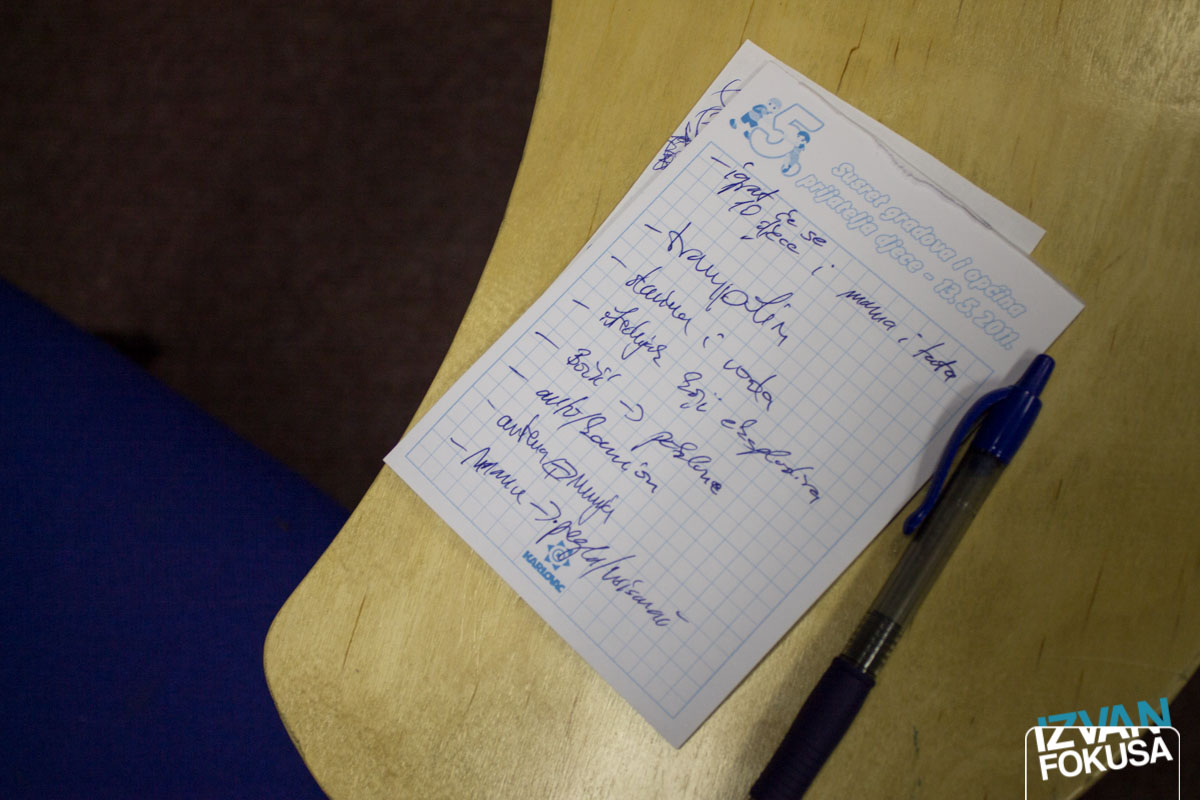 5
Susret gradova i općina
prijatelja djece - 13. 5. 2011.
- igrat će se
10 djece i mama i tata
- trampolin
- i voda
- koji eksplodira
- Božić → poklone
- auto/kamion
- antena
- Mama → pegla/usisavač
KARLOVAC
IZVAN
FOKUSA